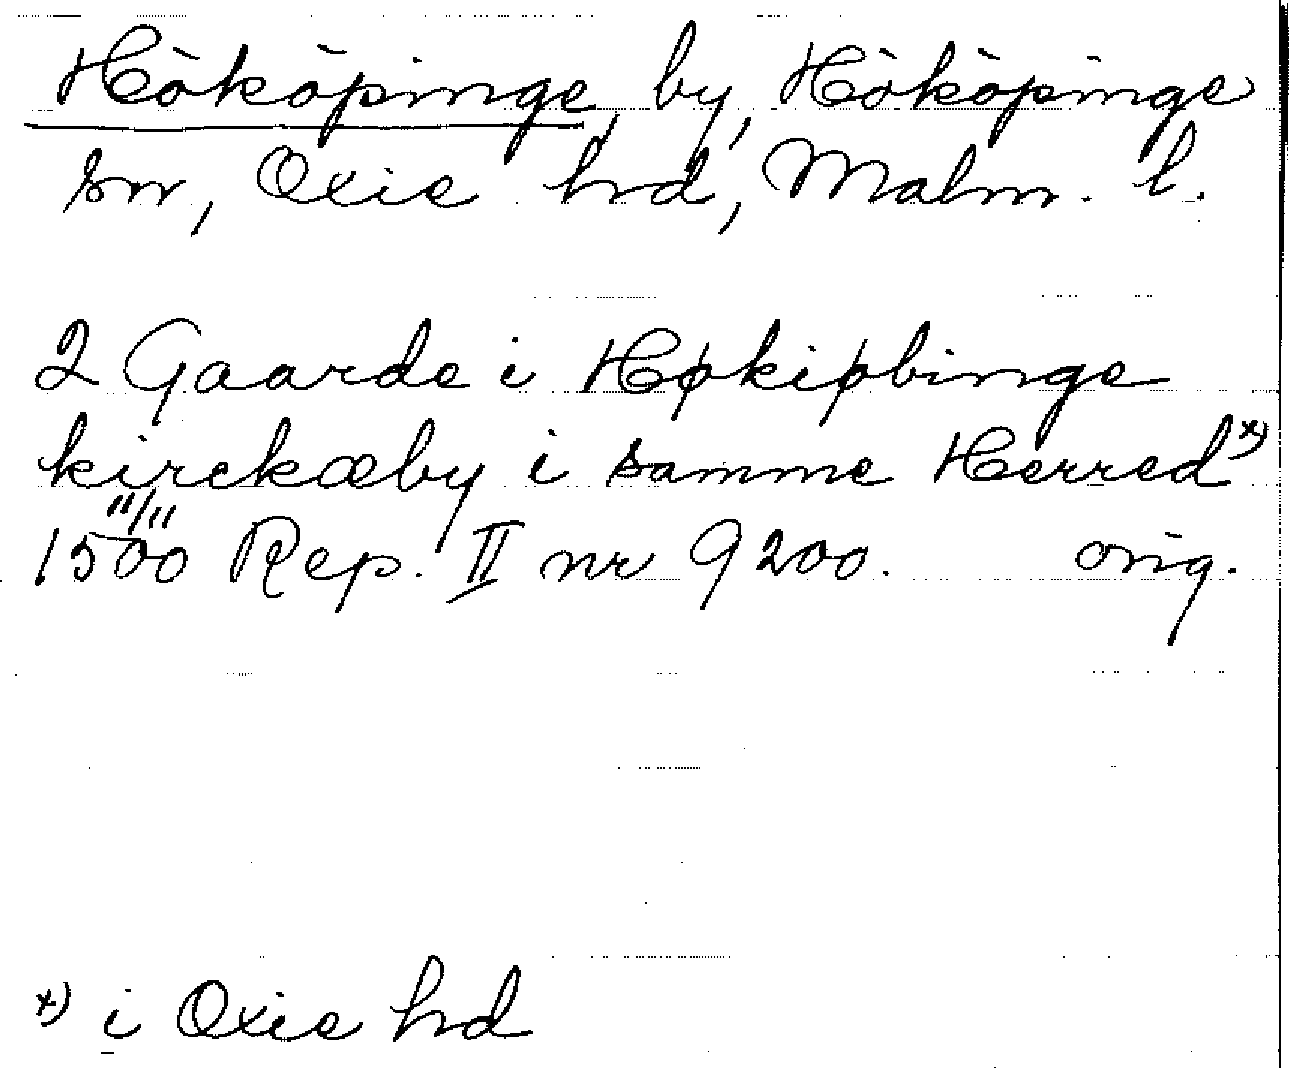 Hököpinge by, Hököpinge
sn, Oxie hrd, Malm. l.
2 Gaarde i Høkiøbinge
kirckæby i samme Herred x)
11/11
1500 Rep. II nr 9200. orig.
x) i Oxie hrd